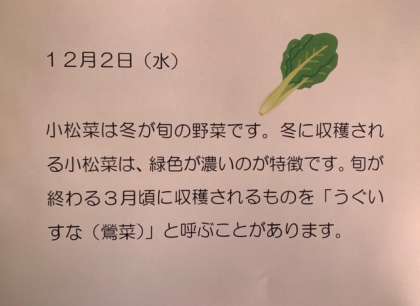 12月2日(水)
小松菜は冬が旬の野菜です。冬に収穫され
る小松菜は、緑色が濃いのが特徴です。旬が
終わる3月頃に収穫されるものを「うぐい
すな(鶯菜)」と呼ぶことがあります。